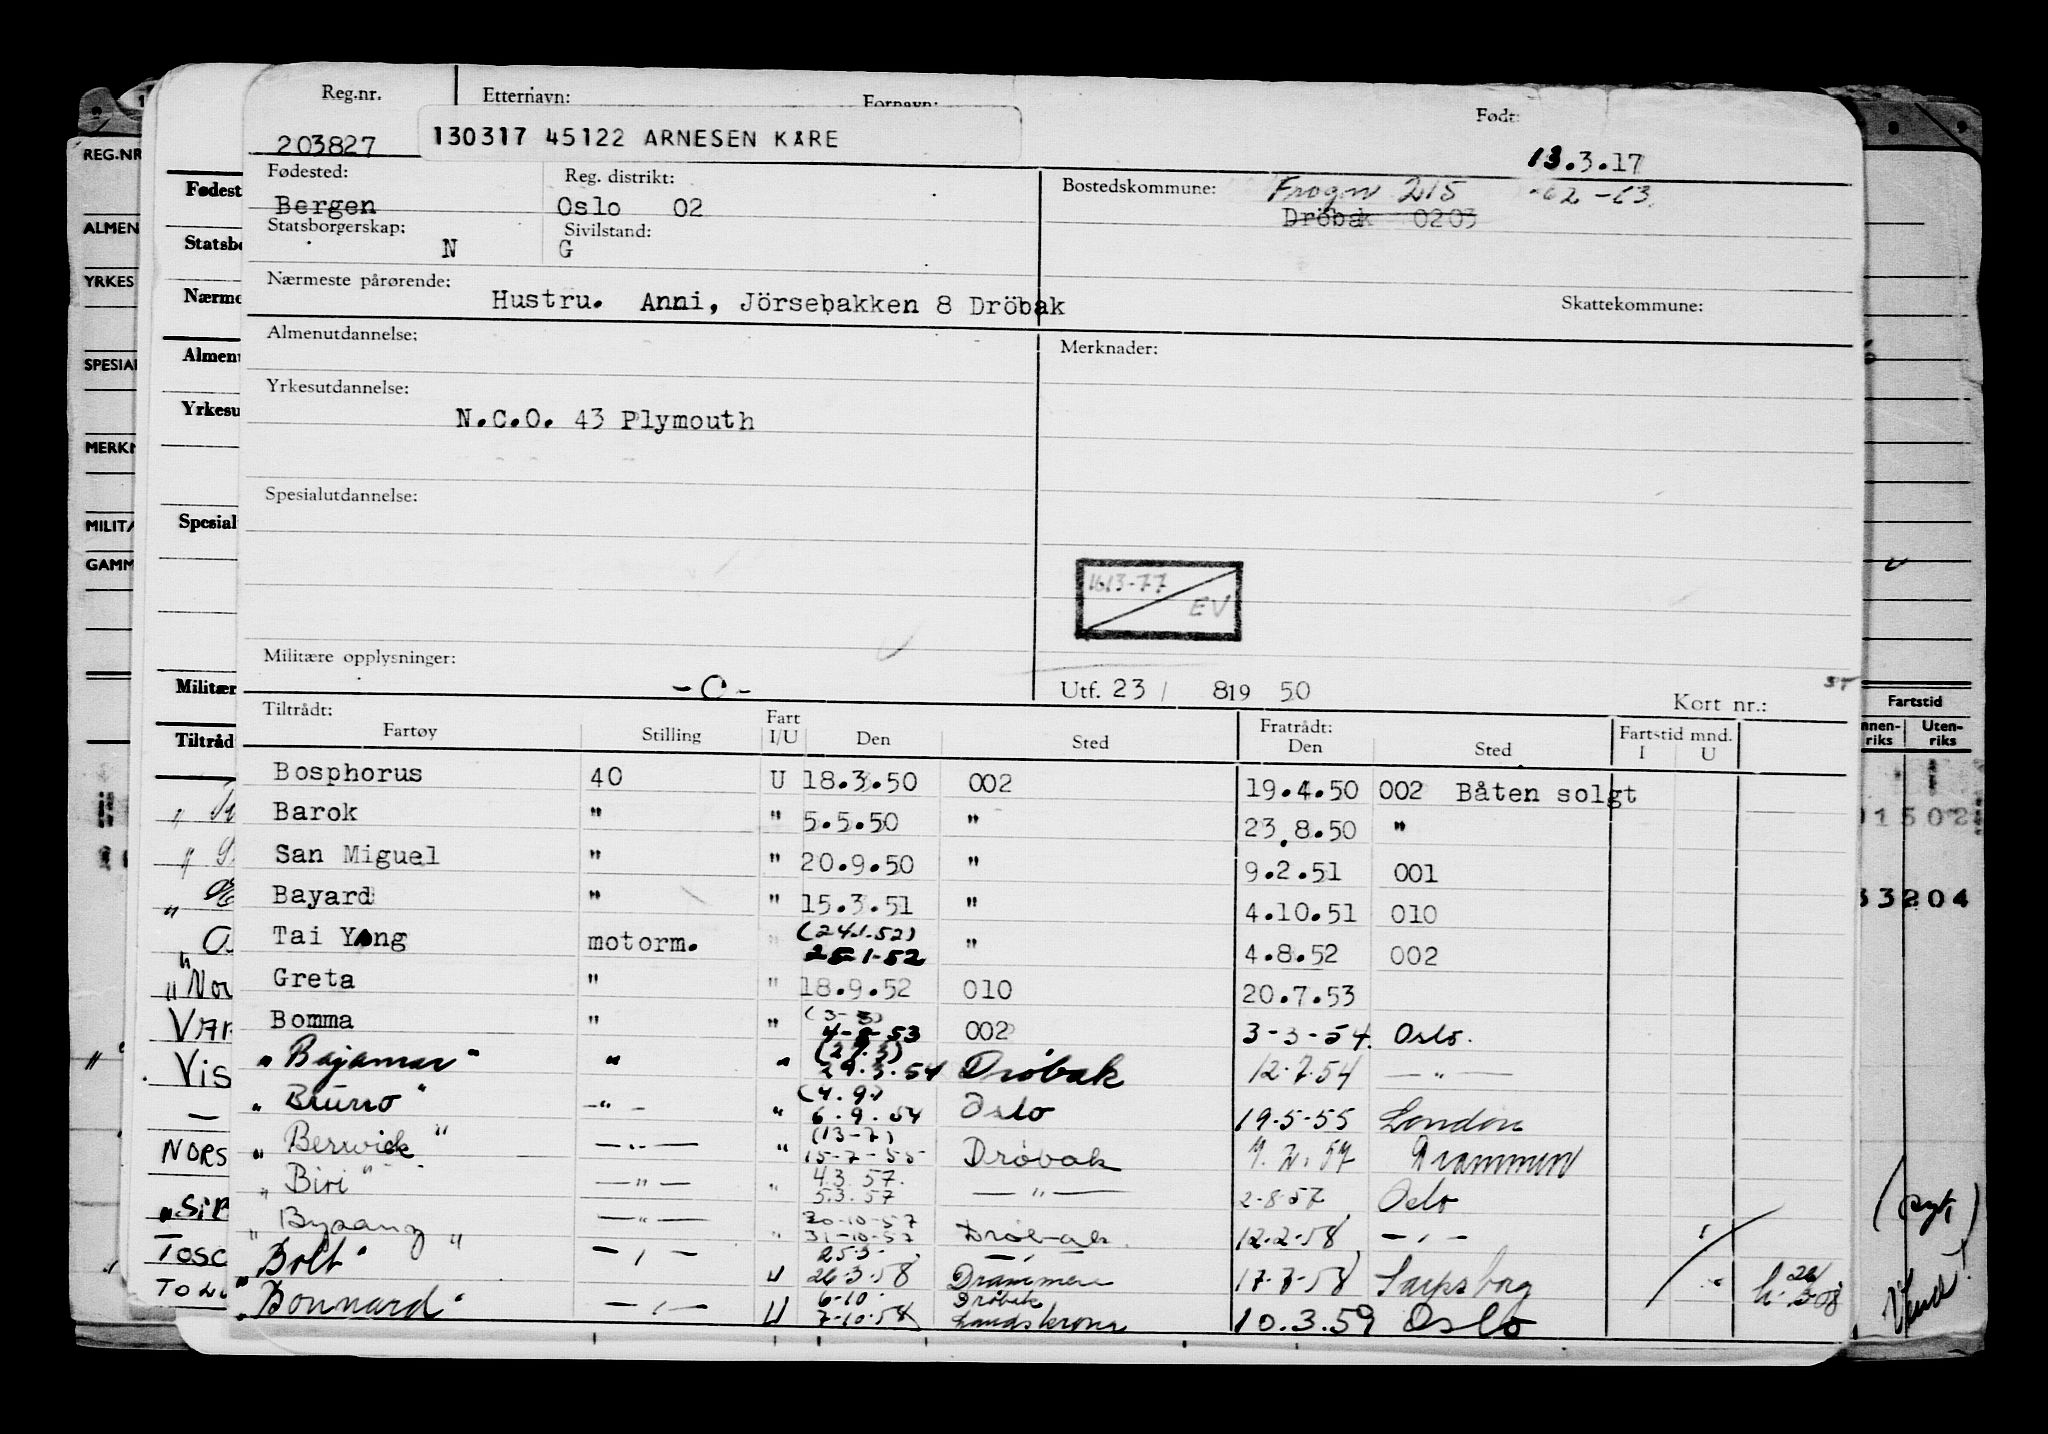 Reg.nr. Etternavn: Fornavn: Født:
203827 130317 45122 ARNESEN KÅRE 13.3.17
Fødested: Reg. distrikt: Bostedskommune: Frogn 215
Bergen Oslo 02 Dröbak 0203
Statsborgerskap: N Sivilstand: G
Nærmeste pårørende: Hustru. Anni, Jörsebakken 8 Dröbak Skattekommune:
Almenutdannelse: Merknader:
Yrkesutdannelse:
N.C.O. 43 Plymouth
Spesialutdannelse:
EV
Militære opplysninger: -C- Utf. 23/ 819 50 Kort nr.:
Tiltrådt: Fratrådt: Fartstid mnd.
Fartøy Stilling Fart I/U Den Sted Den Sted I U
Bosphorus 40 U 18.3.50 002 19.4.50 002 Båten solgt
Barok " " 5.5.50 " 23.8.50 "
San Miguel " " 20.9.50 " 9.2.51 001
Bayard " " 15.3.51 " 4.10.51 010
Tai Yang motorm. " (24.1.52) " 4.8.52 002
Greta " " 18.9.52 010 20.7.53
Bomma " " 002 3-3-54. Oslo.
"Bajamar" " " 29.3.54 Drøbak 12.7.54 — " —
"Bruno" — " — " (4.9) 6.9.54 Oslo 19-5-55 London
"Berwick" — " — " (13-7) 15-7-55 Drøbak Drammen
"Biri" — " — " 4.3.57. 5.3.57 — " — 2-8-57 Oslo
— " — " 30-10-57 31-10-57 Drøbak. 12.2.58 — " —
"Bolt" — " — U 25.3. 26.3.58 Drammen Sarpsborg
"Bonnard" — " — U 6-10. 7-10.58 Drøbak Landskrona 10.3.59 Oslo
REG.NR
ALMEN
YRKES
SPESIAL
MERKN
MILITÆ
GAMM
Fødest
Statsbo
Nærme
Almenu
Yrkesu
Spesial
Militær
Tiltråd
Vis
NORS
TOSC
Fartstid
Innen-riks Uten-riks
33204